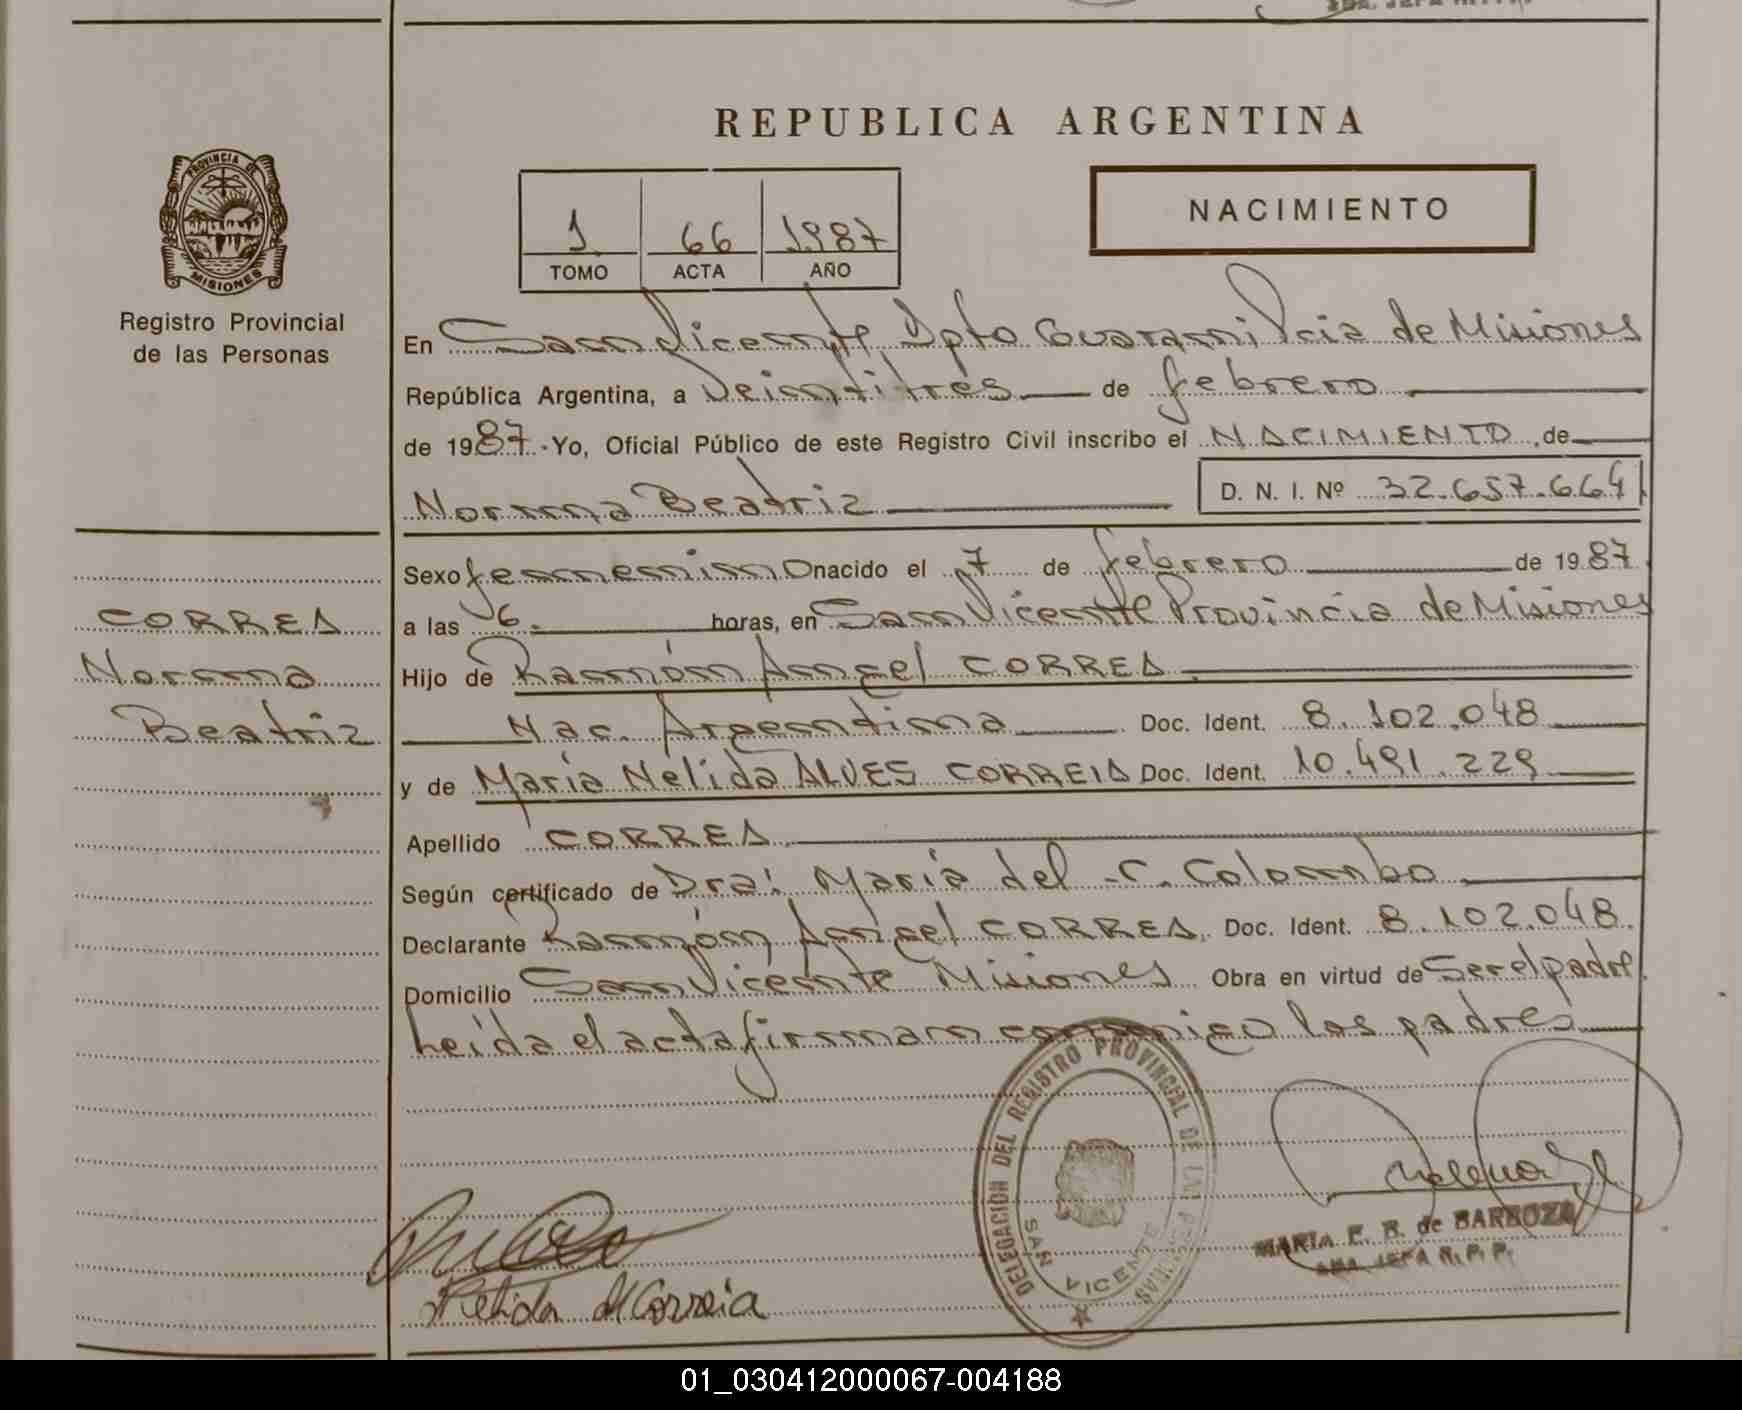 REPUBLICA ARGENTINA
PROVINCIA DE
MISIONES
Registro Provincial
de las Personas
1 66 1987
TOMO ACTA AÑO
NACIMIENTO
En San Vicente, Dpto Guarani Pcia de Misiones
República Argentina, a Veintitres de febrero
de 1987.- Yo, Oficial Público de este Registro Civil inscribo el NACIMIENTO de
Norma Beatriz D. N. I. Nº 32.657.664
Sexo femenino nacido el 7 de febrero de 1987
a las 6. horas, en San Vicente Provincia de Misiones
Hijo de Ramón Angel CORREA
Nac. Argentina Doc. Ident. 8.102.048
y de María Nélida ALVES CORREIA Doc. Ident. 10.491.229
Apellido CORREA
Según certificado de Dra: María del C. Colombo
Declarante Ramón Angel CORREA Doc. Ident. 8.102.048
Domicilio San Vicente Misiones Obra en virtud de Ser el padre.
Leida el acta firman conmigo los padres
CORREA
Norma
Beatriz
DELEGACIÓN DEL REGISTRO PROVINCIAL DE LAS PERSONAS
SAN VICENTE
MARIA E. B. de BARBOZA
JEFA R. P. P.
Nelida A Correia
01_030412000067-004188